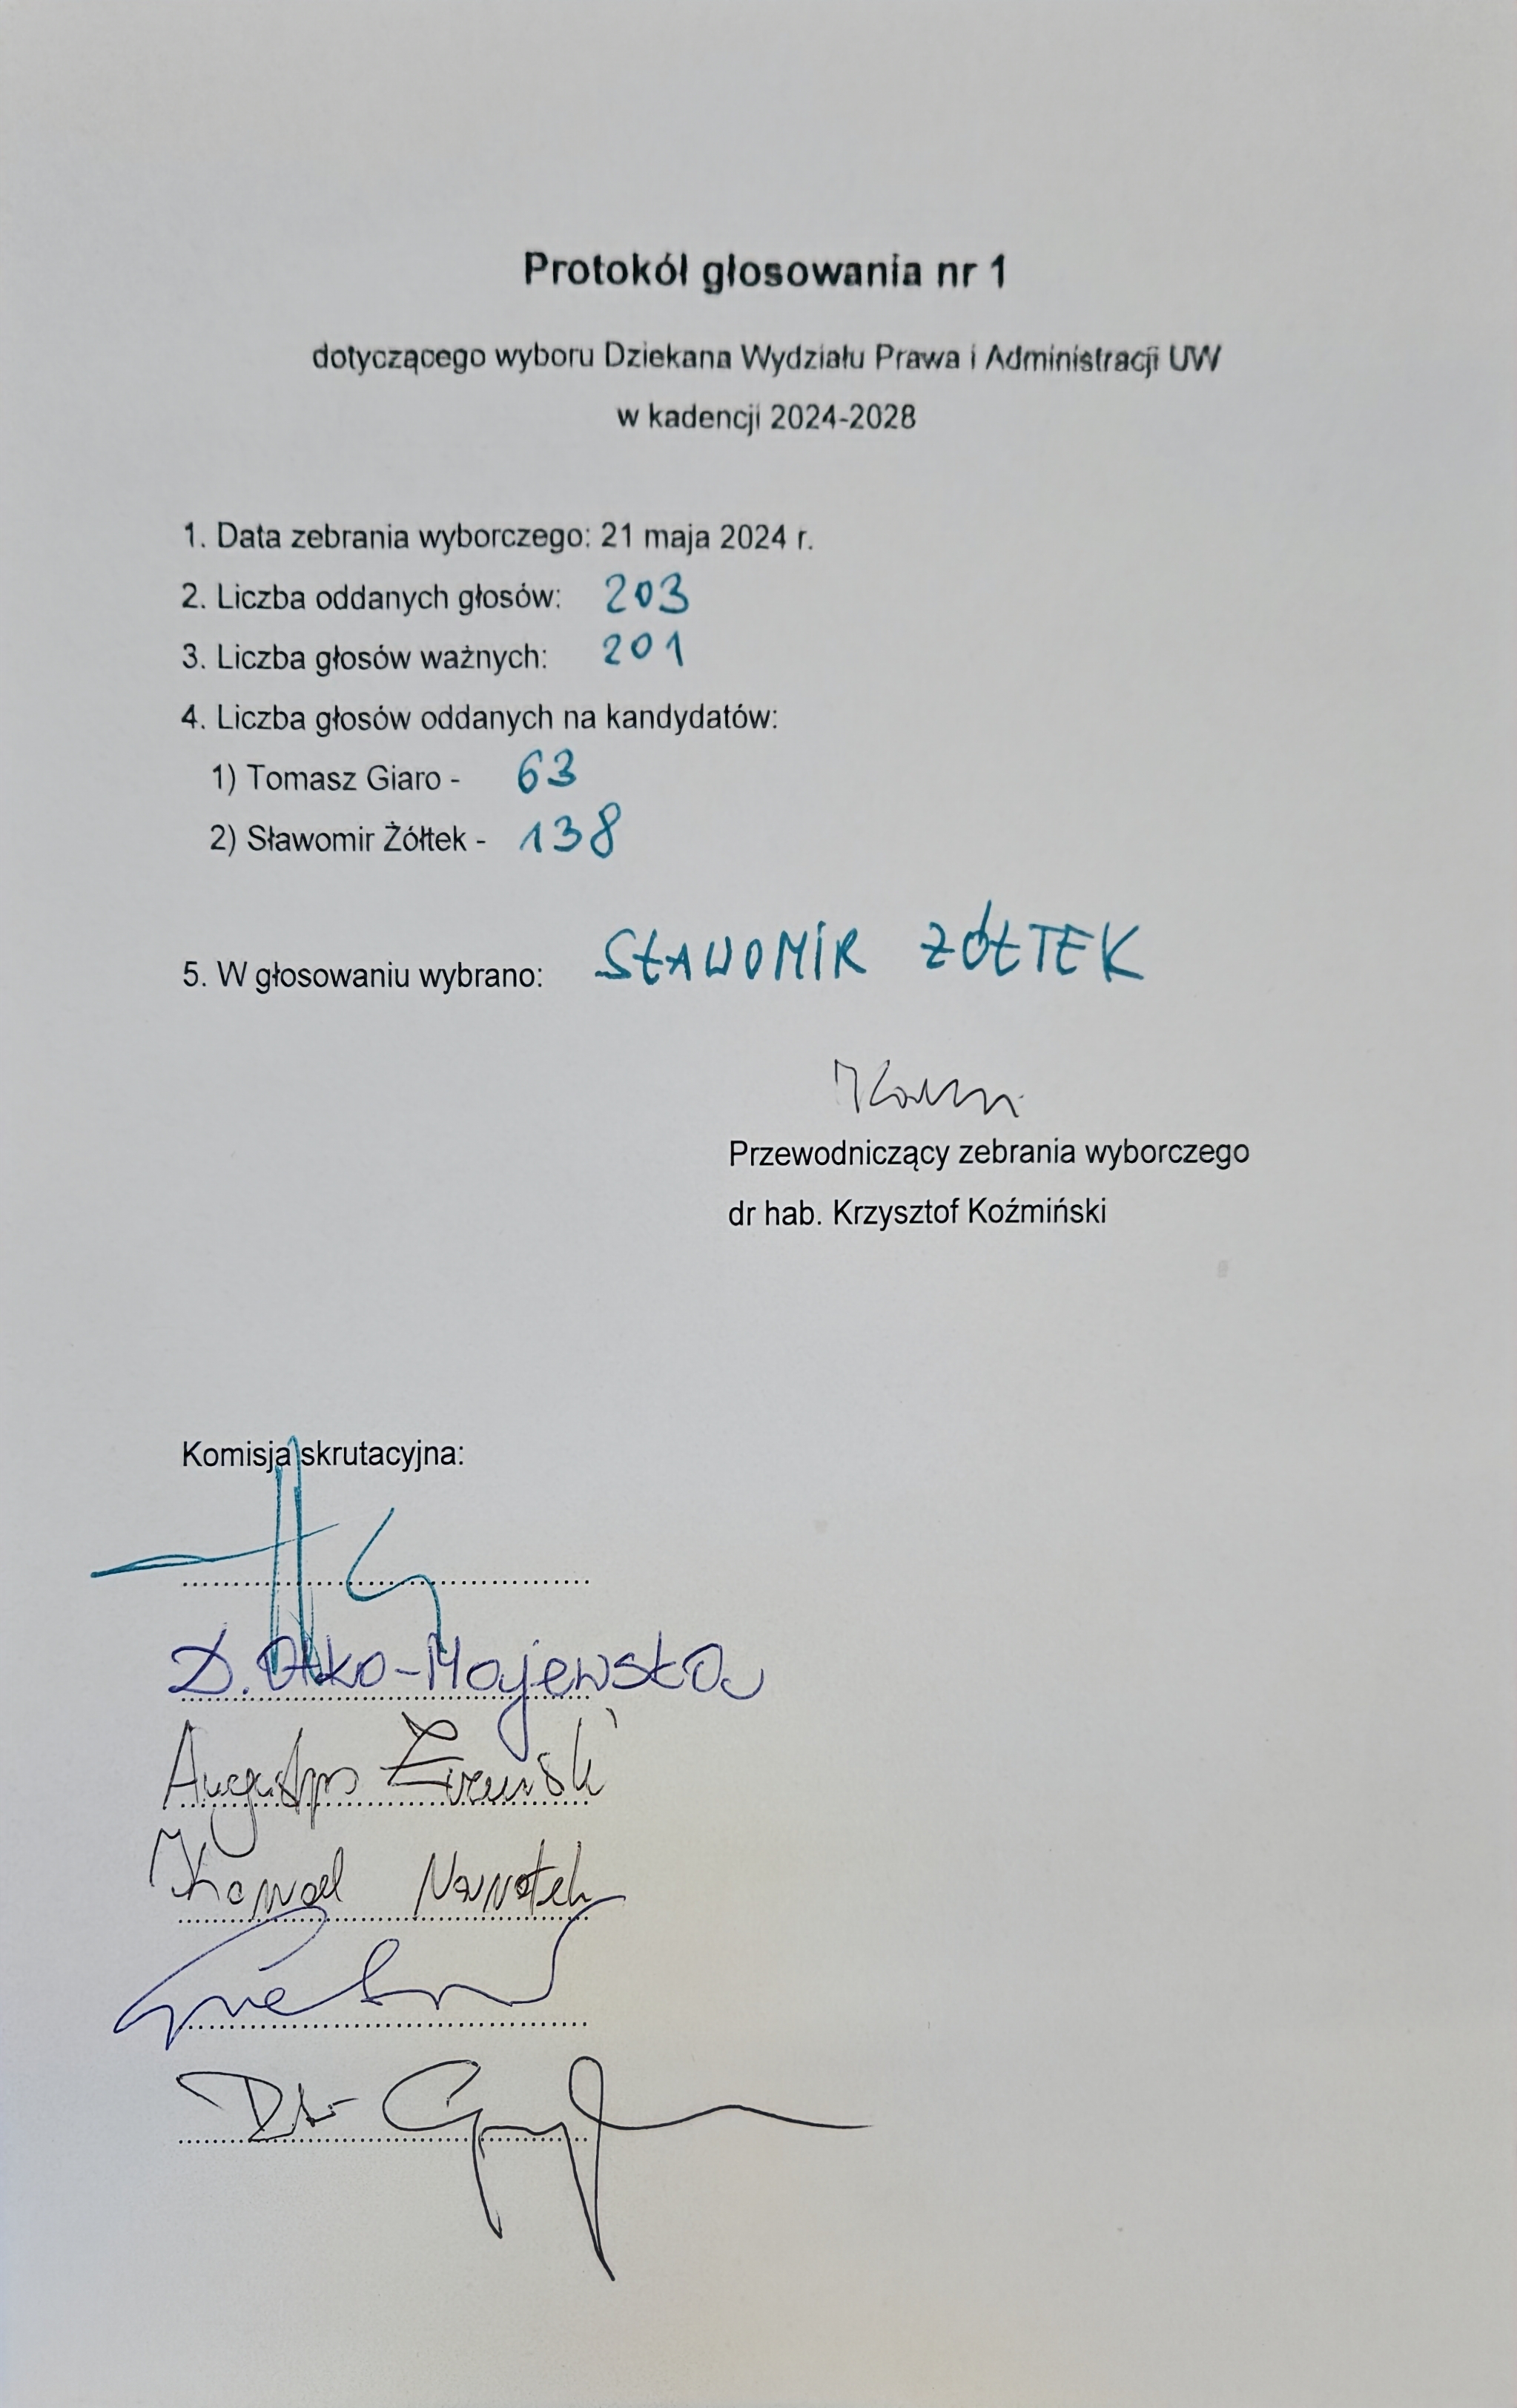 Protokół głosowania nr 1
dotyczącego wyboru Dziekana Wydziału Prawa i Administracji UW
w kadencji 2024-2028
1. Data zebrania wyborczego: 21 maja 2024 r.
2. Liczba oddanych głosów: 203
3. Liczba głosów ważnych: 201
4. Liczba głosów oddanych na kandydatów:
1) Tomasz Giaro - 63
2) Sławomir Żółtek - 138
5. W głosowaniu wybrano: SŁAWOMIR ŻÓŁTEK
Przewodniczący zebrania wyborczego
dr hab. Krzysztof Koźmiński
Komisja skrutacyjna:
D. Olko-Majewska